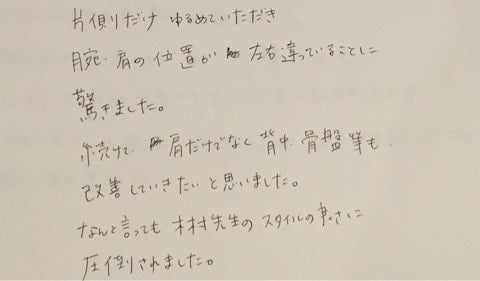 片側だけ ゆるめていただき
腕・肩の位置が 左右違っていることに
驚きました。
続けて、肩だけでなく 背中、骨盤等も
改善していきたいと思いました。
なんと言っても 木村先生の スタイルの良さに
圧倒されました。